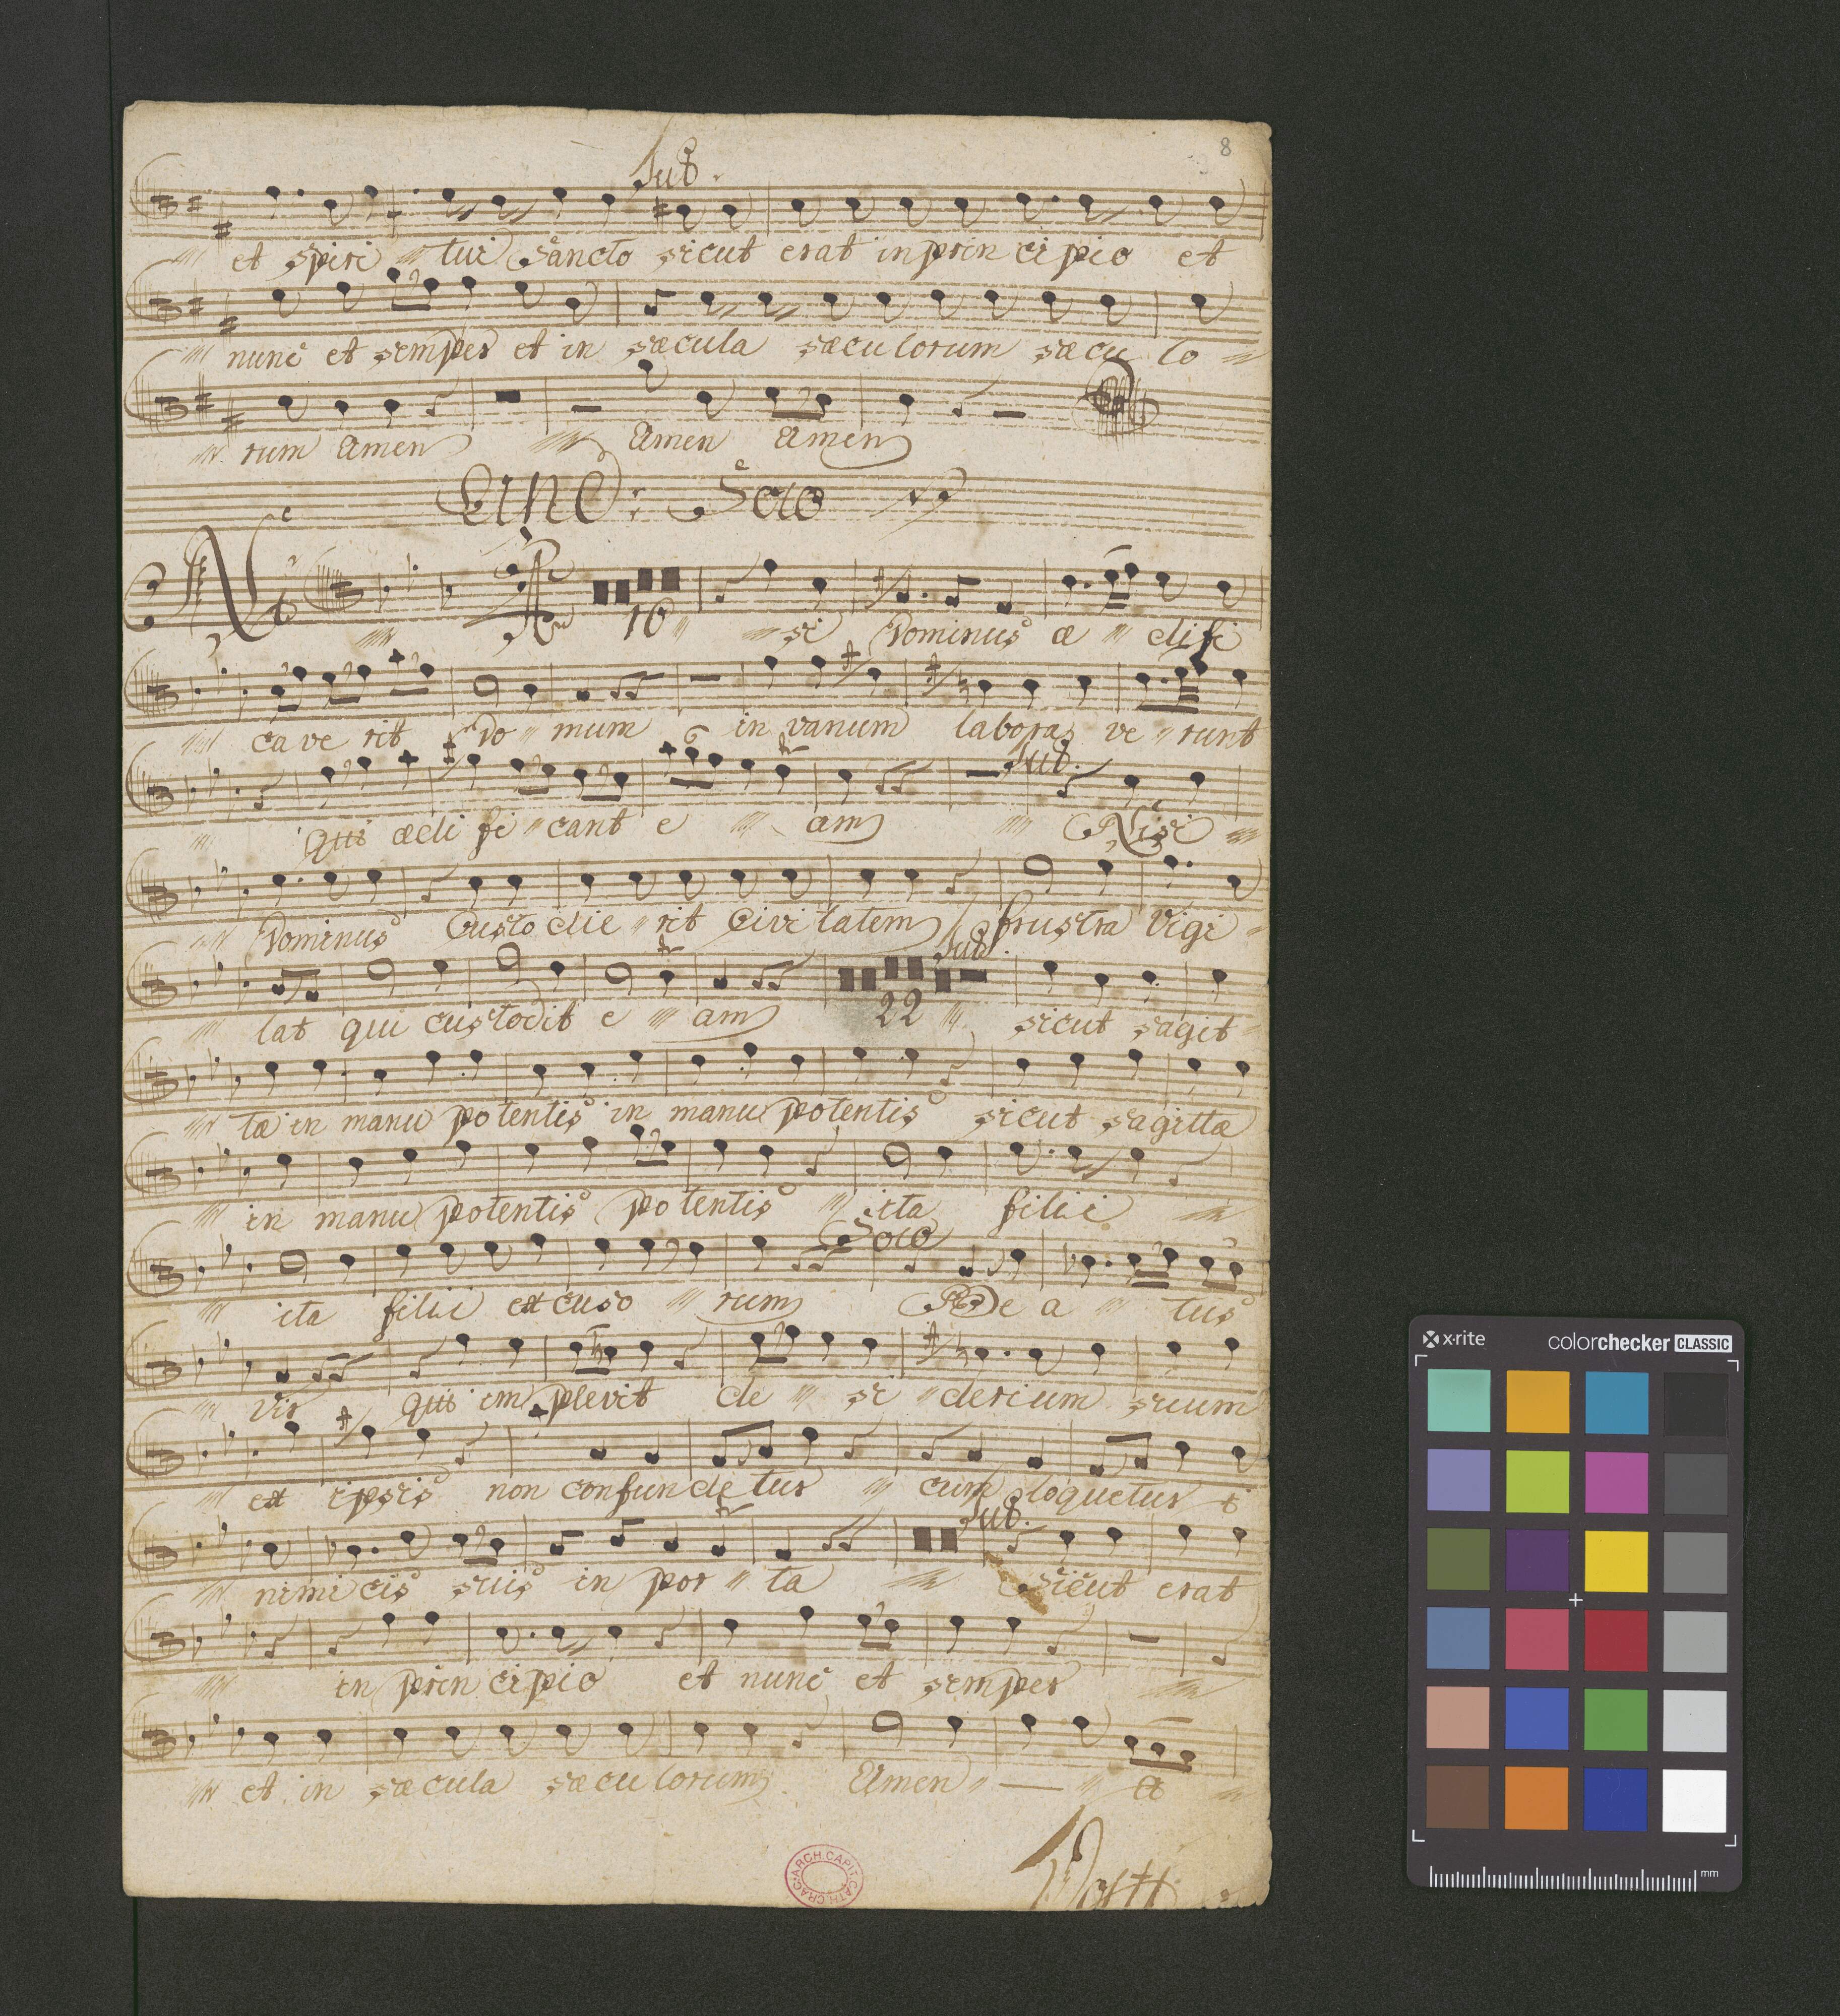 8
Sub.
et spiri tui Sancto sicut erat in prin cipio et
nunc et semper et in sæcula sæculorum sæcu lo
rum Amen Amen Amen
Solo
16
si Dominus æ difi
cave rit Do mum in vanum labora ve runt
6
Sub.
qui ædi fi cant e am Nisi
Dominus Custo die rit Civi tatem frustra Vigi
Sub.
22
lat qui custodit e am sicut sagit
tæ in manu potentis in manu potentis sicut sagittæ
in manu potentis potentis ita filii
Solo
ita filii ex cuso rum Be a tus
Vir qui im plevit de si derium suum
ex ipsis non confun detur cum loquetur i
Sub.
nimi cis suis in por ta Sicut erat
in prin cipio et nunc et semper
et in sæcula sæcu lorum Amen A
ARCH.CAPIT.CATH.CRAC.
x·rite colorchecker CLASSIC
mm